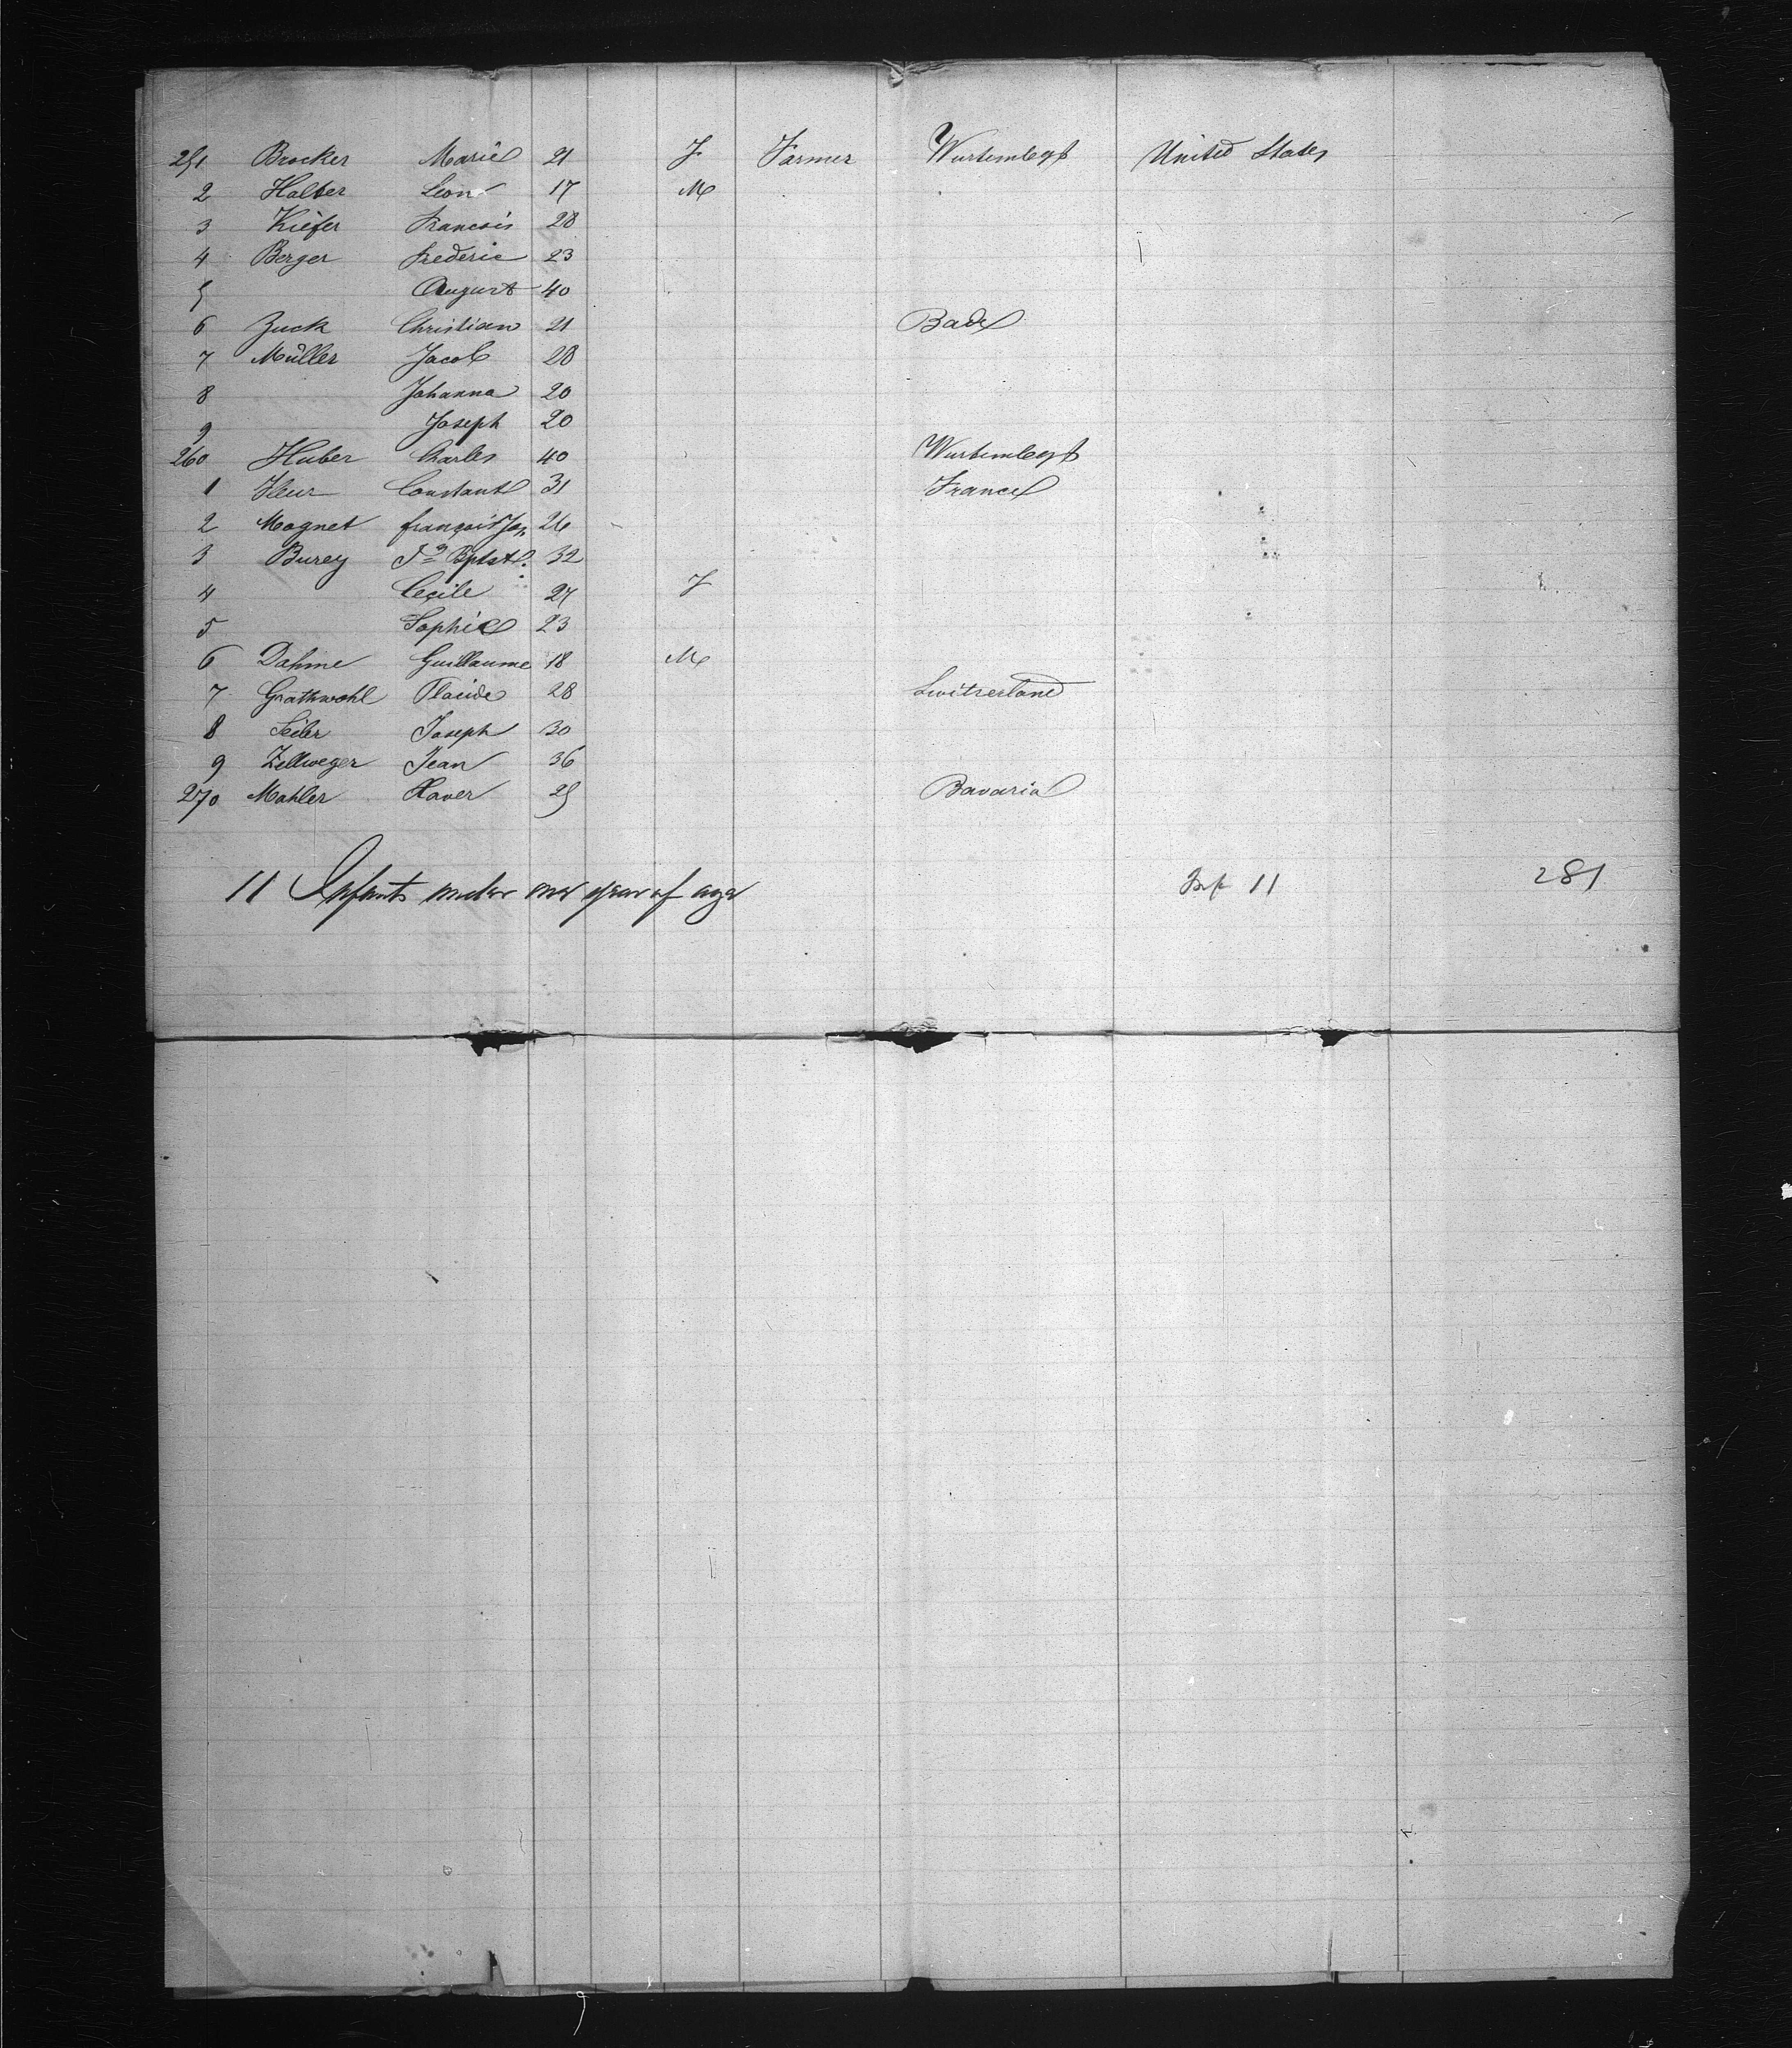 251 Brocker Marie 21 F Farmer Wurtembergs United States
2 Halter Leon 17 M
3 Kiefer Francois 28
4 Berger Frederic 23
5 August 40
6 Zuck Christian 21 Bade
7 Müller Jacob 28
8 Johanna 20
9 Joseph 20
260 Huber Charles 40 Wurtembergs
1 Fleur Constant 31 France
2 Magnet françois Jos 26
3 Burey Jn Bptste 32
4 Cecile 27 F
5 Sophie 23
6 Dahme Guillaume 18 M
7 Grathwohl Placide 28 Switzerland
8 Seiler Joseph 30
9 Zellweger Jean 36
270 Mahler Xaver 25 Bavaria
11 Infants under one year of age Inf 11 281